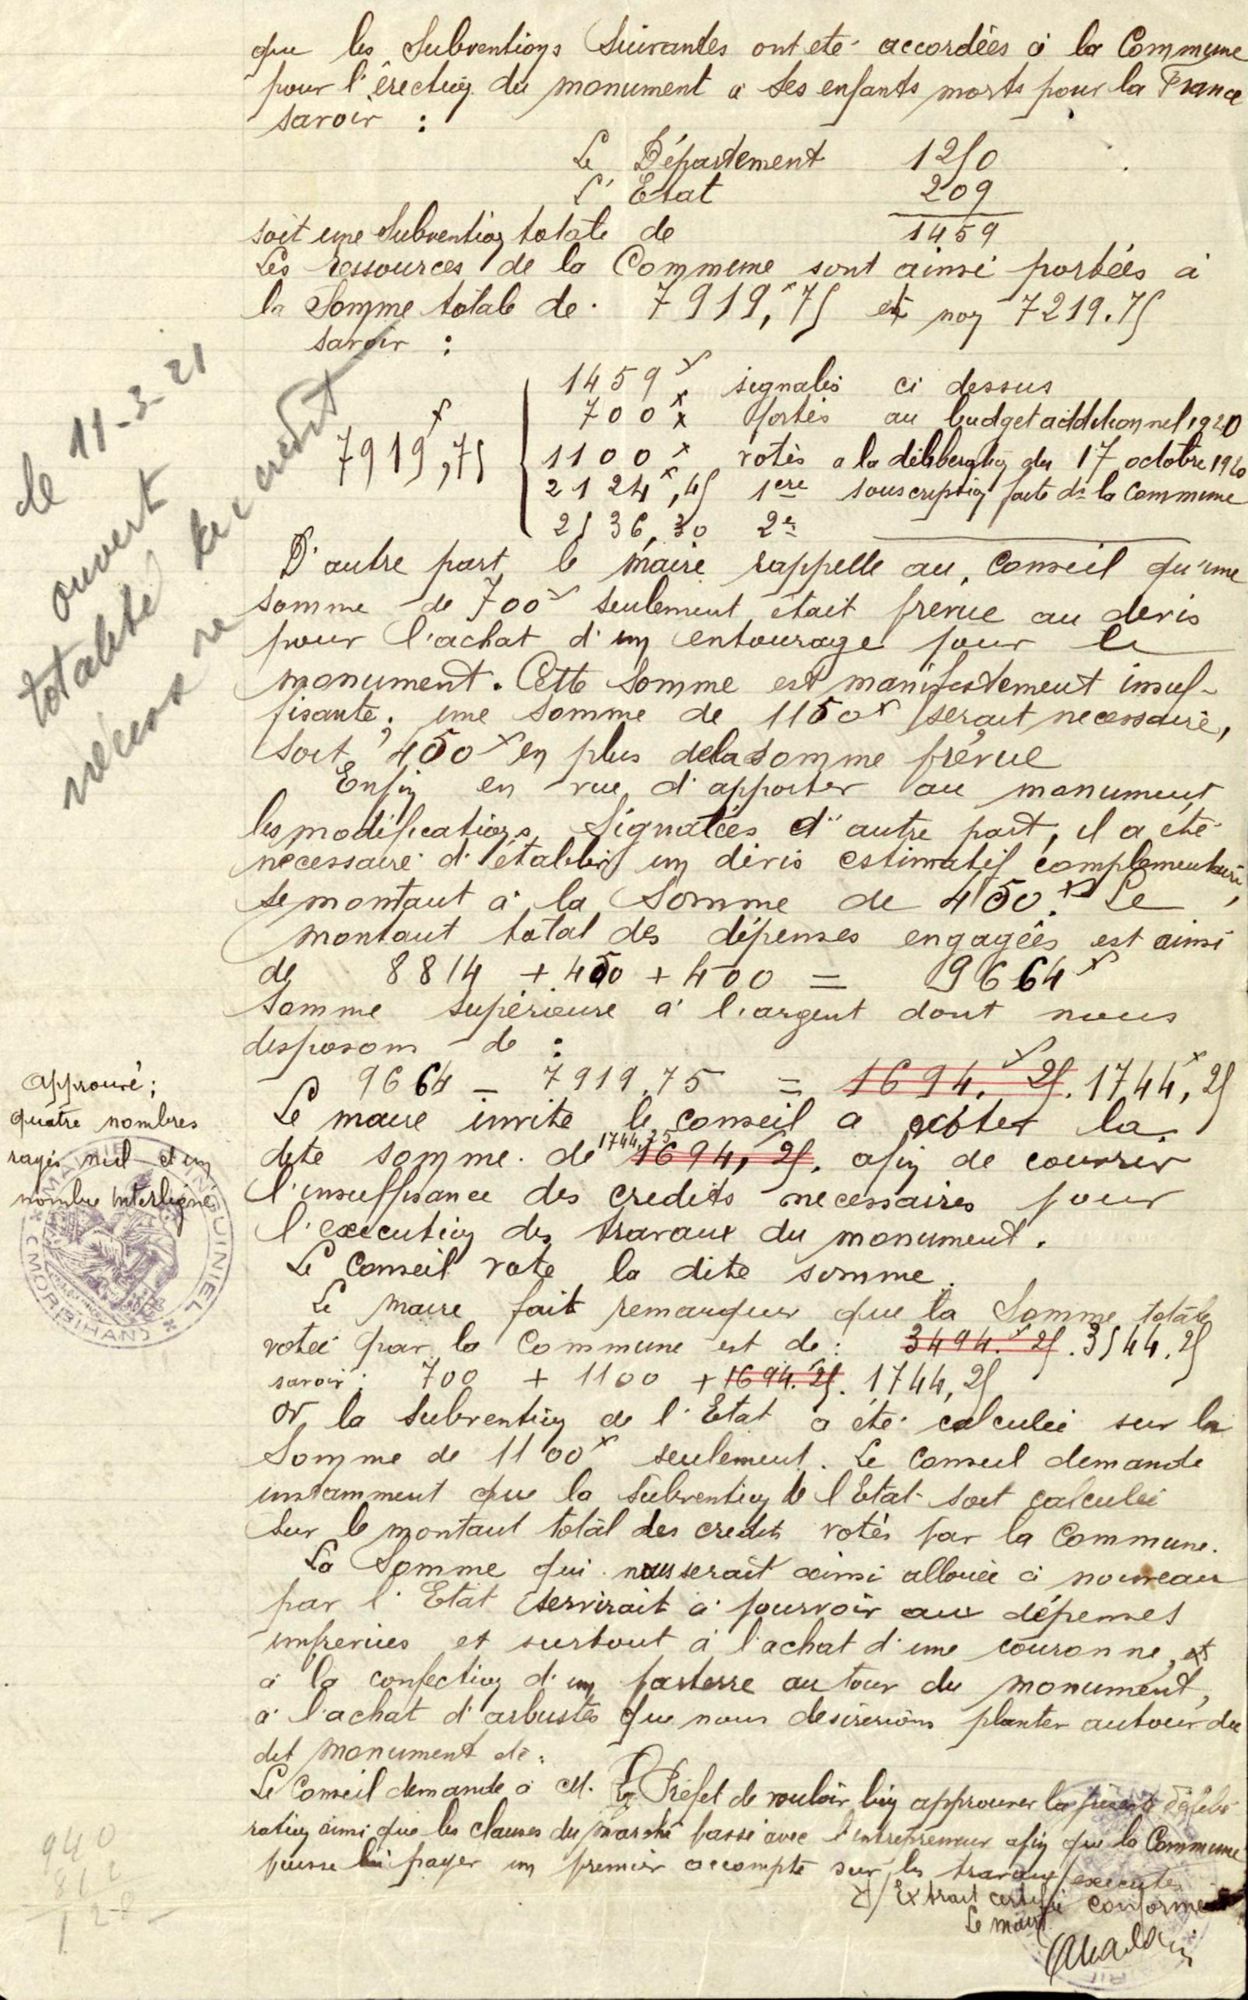 que les Subventions Suivantes ont été accordées à la Commune
pour l'érection du monument à ses enfants morts pour la France
savoir :
Le Département 1250
L'Etat 209
soit une Subvention totale de 1459
Les ressources de la Commune sont ainsi portées à
la Somme totale de 7919,75 et non 7219.75
savoir :
1459 signalés ci dessus
700 portés au budget additionnel 1920
7919,75
1100 votés à la délibération du 17 octobre 1920
2124,45 1ere souscription faite ds la Commune
2536,30 2e
D'autre part le maire rappelle au conseil qu'une
somme de 700 seulement était prévue au devis
pour l'achat d'un entourage pour le
monument. Cette somme est manifestement insuf-
fisante; une somme de 1150 serait nécessaire,
soit 450 en plus de la somme prévue
Enfin en vue d'apporter au monument
les modifications Signalées d'autre part, il a été
nécessaire d'établir un dévis estimatif complémentaire,
se montant à la Somme de 450. Le
montant total des dépenses engagées est ainsi
de 8814 + 450 + 400 = 9664
somme supérieure à l'argent dont nous
disposons de :
9664 - 7919.75 = 1694.25. 1744,25
Le maire invite le conseil à voter la
dite somme de 1744,25 1694,25. afin de couvrir
l'insuffisance des crédits nécessaires pour
l'exécution des travaux du monument.
Le Conseil vote la dite somme.
Le maire fait remarquer que la Somme totale
votée par la Commune est de : 3494.25. 3544.25
savoir : 700 + 1100 + 1694.25. 1744,25
Or la Subvention de l'Etat a été calculée sur la
Somme de 1100 seulement. Le Conseil demande
instamment que la Subvention de l'Etat soit calculée
sur le montant total des crédits votés par la Commune.
La Somme qui nous serait ainsi allouée à nouveau
par l'Etat servirait à pourvoir aux dépenses
imprévues et surtout à l'achat d'une couronne, et
à la confection d'un parterre au tour du monument,
à l'achat d'arbustes que nous désirerions planter autour du
dit monument etc.
Le Conseil demande à M. le Préfet de vouloir bien approuver la présente délibé-
ration ainsi que les clauses du marché passé avec l'entrepreneur afin que la Commune
puisse lui payer un premier accompte sur les travaux exécutés
Extrait certifié conforme
Le maire
le 11-3-21
ouvert
totalité du crédit
nécessaire
approuvé;
quatre nombres
rayés nuls et un
nombre interligné
MAIRIE D'INGUINIEL
(MORBIHAN)
940
812
128